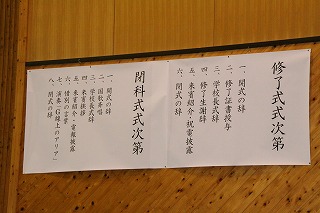 修了式式次第
一、開式の辞
二、修了証書授与
三、学校長式辞
四、修了生謝辞
五、来賓紹介・祝電披露
六、閉式の辞
閉科式式次第
一、開式の辞
二、国歌斉唱
三、学校長式辞
四、来賓挨拶
五、来賓紹介・電報披露
六、惜別の言葉
七、演奏「G線上のアリア」
八、閉式の辞